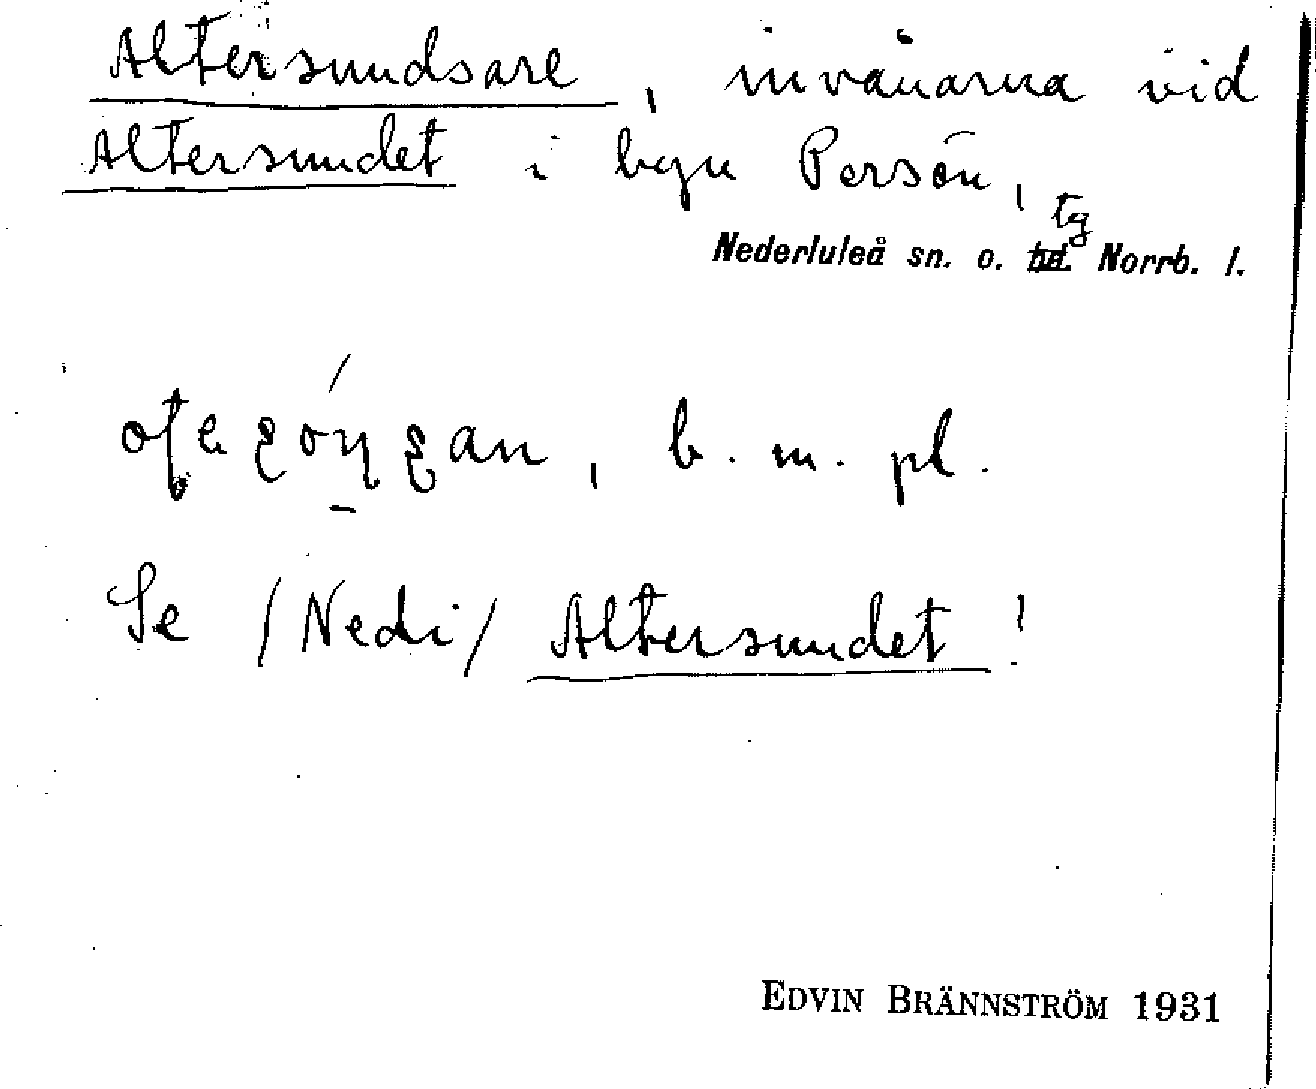 Altersundsare, invånarna vid
Altersundet i byn Persön,
tg
Nederluleå sn. o. hd. Norrb. l.
b. m. pl.
Se /Nedi/ Altersundet!
EDVIN BRÄNNSTRÖM 1931